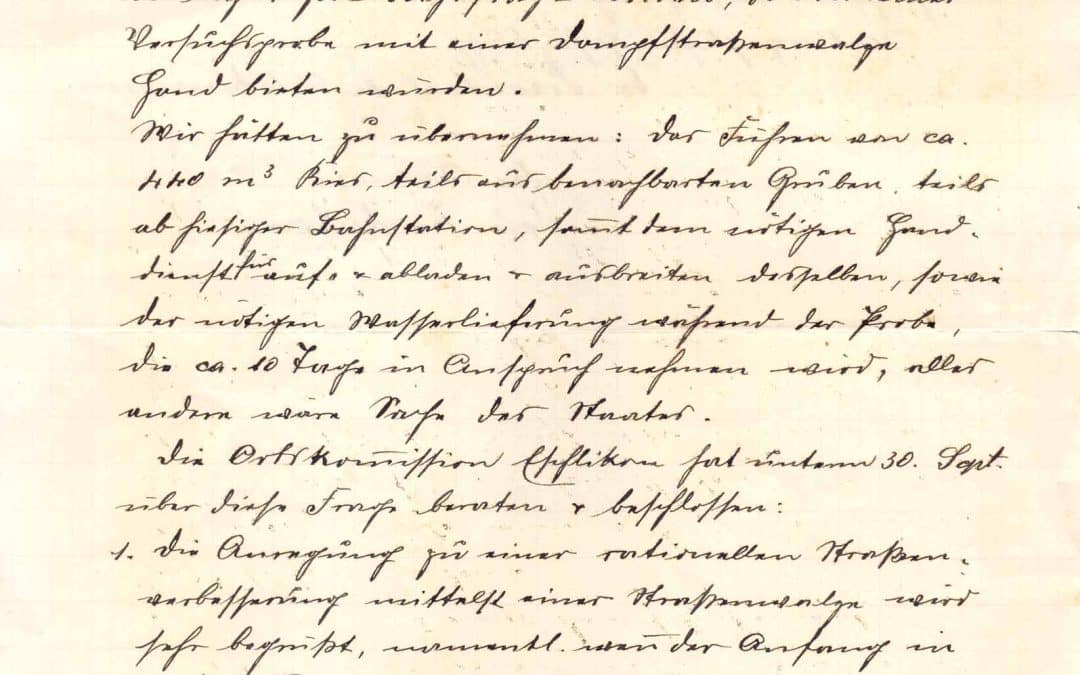 Versuchsprobe mit einer Dampfstraßenwalze
Hand bieten würden.
Wir hätten zu übernehmen: Das Führen von ca.
440 m³ Kies, teils aus benachbarten Gruben, teils
ab hiesiger Bahnstation, sam̅t dem nötigen Hand-
dienst für auf- & abladen & ausbreiten desselben, sowie
der nötigen Wasserlieferung während der Probe,
die ca. 10 Tage in Anspruch nehmen wird, alles
andere wäre Sache des Staates.
Die Ortskom̅ission Eschlikon hat unterm 30. Sept.
über diese Frage beraten & beschlossen:
1. Die Anregung zu einer rationellen Straßen-
verbesserung mittelst einer Straßenwalze wird
sehr begrüßt, namentl. wen̅ der Anfang in